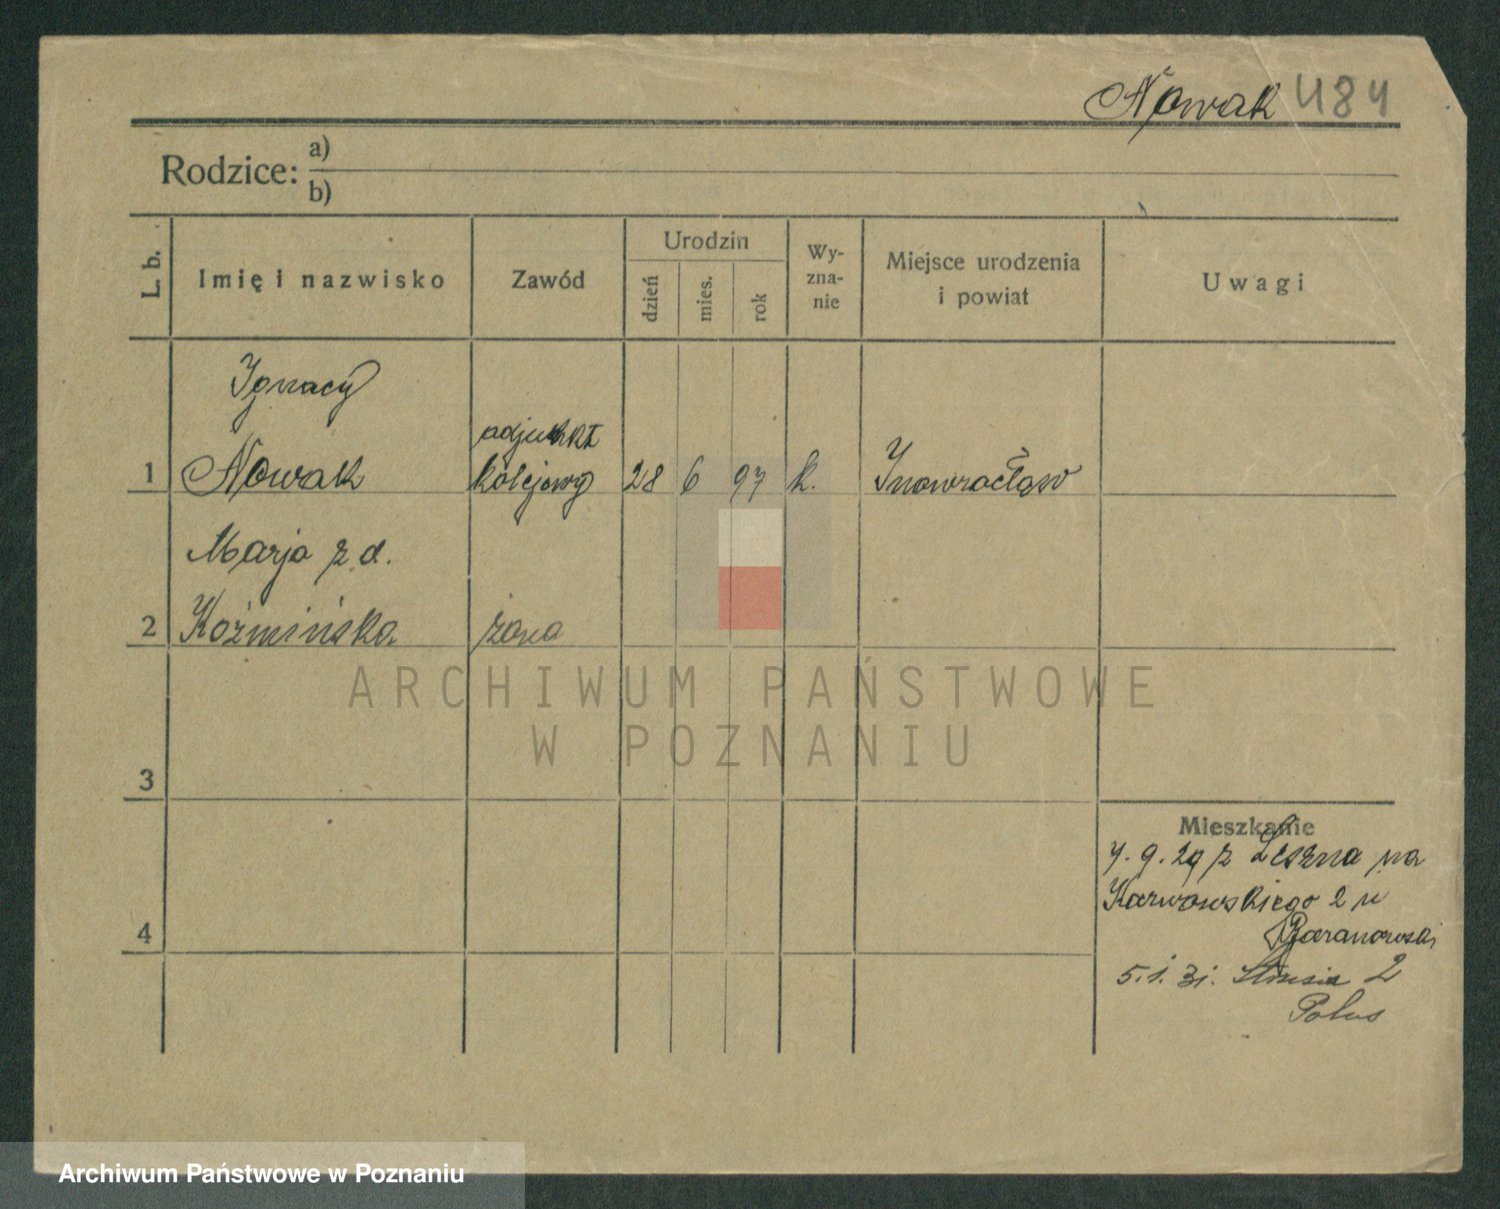 Nowak 484
Rodzice: a)
b)
L. b.
Imię i nazwisko
Zawód
Urodzin
dzień
mies.
rok
Wy-
zna-
nie
Miejsce urodzenia
i powiat
Uwagi
Ignacy
adjunkt
1 Nowak kolejowy 28 6 97 k. Inowrocław
Marja z d.
2 Koźmińska żona
3
Mieszkanie
7.9.29 z Leszna na
Karwowskiego 2 u
4
Baranowski
5.1.31. Strusia 2
Polus
ARCHIWUM PAŃSTWOWE
W POZNANIU
Archiwum Państwowe w Poznaniu